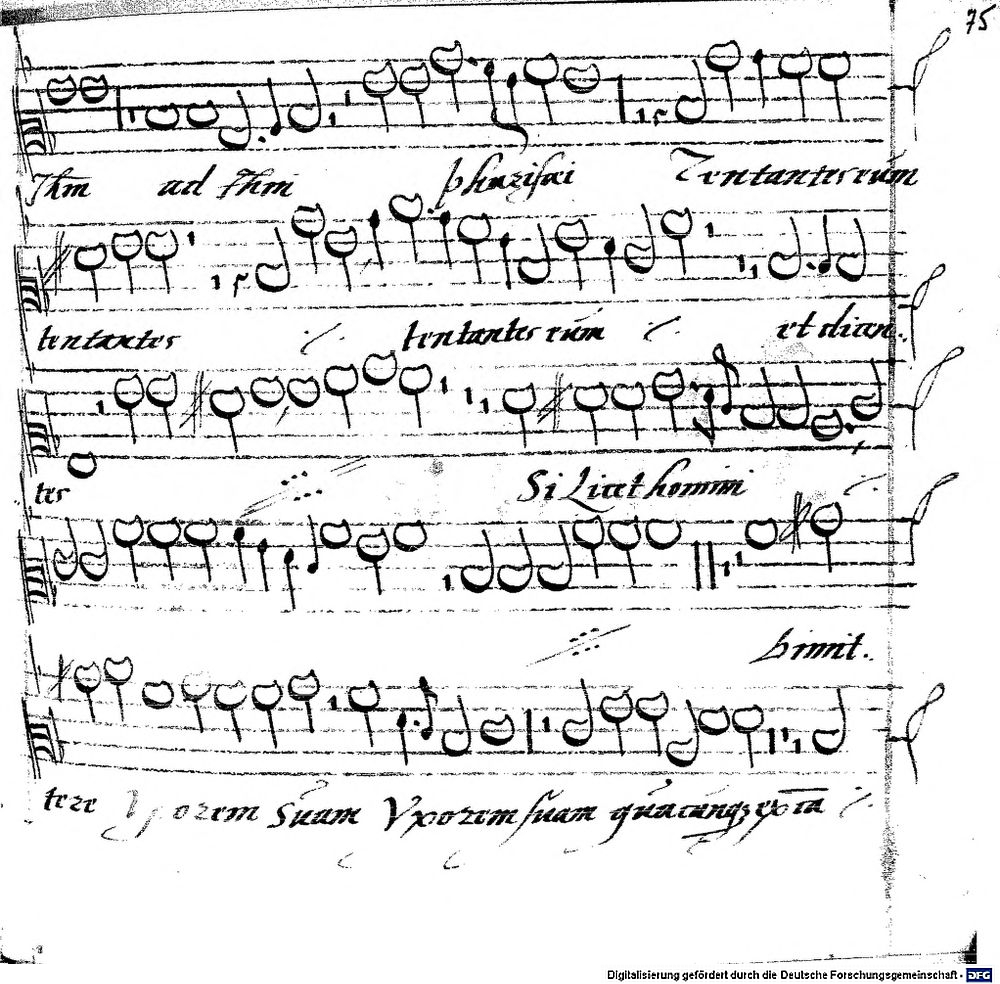 75
Jhm ad Jhm pharisæi Tentantes eum
tentantes ·/. tentantes eum ·/. et dicen.
tes Si Licet homini ·/.
bimit.
tere Vxorem suam Vxorem suam quacunqz ex cā ·/.
Digitalisierung gefördert durch die Deutsche Forschungsgemeinschaft - DFG